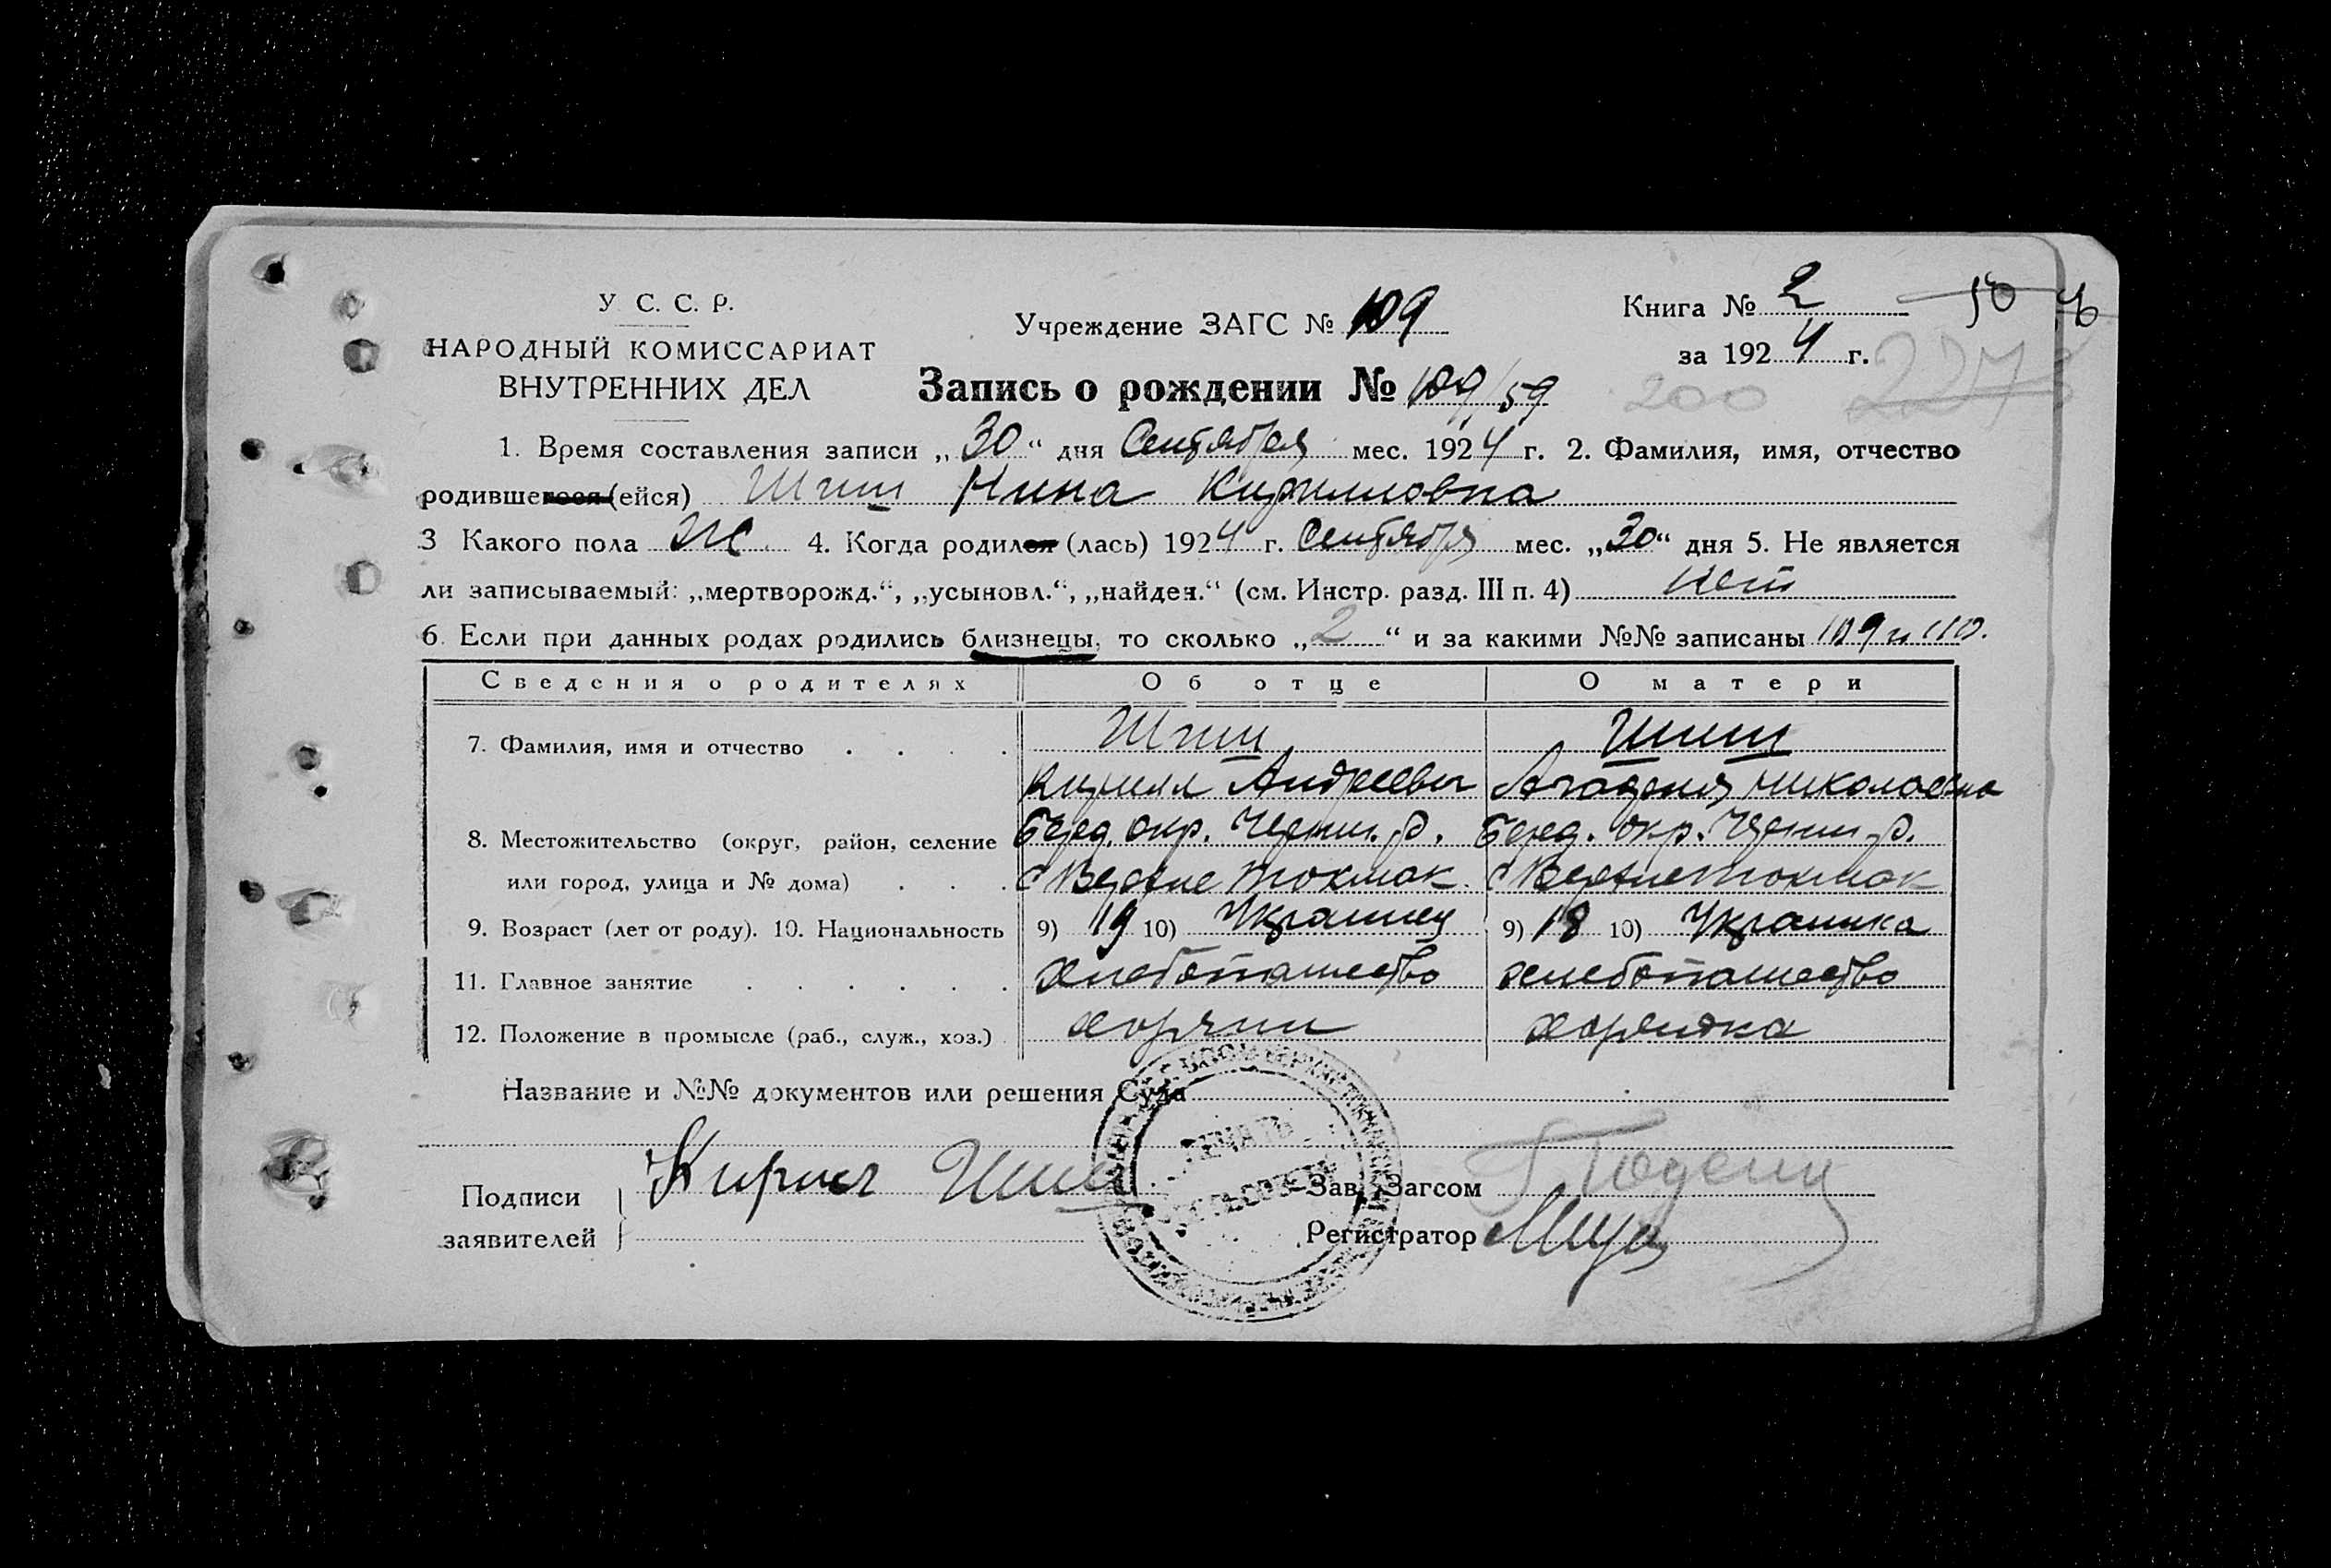 У. С. С. Р.
НАРОДНЫЙ КОМИССАРИАТ
ВНУТРЕННИХ ДЕЛ
Учреждение ЗАГС № 109
Книга № 2
за 1924 г.
50
Запись о рождении № 109/59
200 227
1. Время составления записи „30“ дня Сентября мес. 1924 г. 2. Фамилия, имя, отчество
родившегося (ейся) Шиш Нина Кирилловна
3 Какого пола Ж. 4. Когда родился (лась) 1924 г. Сентября мес. „30“ дня 5. Не является
ли записываемый: „мертворожд.“, „усыновл.“, „найден.“ (см. Инстр. разд. III п. 4) нет
6. Если при данных родах родились близнецы, то сколько „2“ и за какими №№ записаны 109 и 110.
Сведения о родителях Об отце О матери
7. Фамилия, имя и отчество . . . . Шиш Шиш
Кирилл Андреевич николаевна
8. Местожительство (округ, район, селение Беред. окр. Черниг. р. Беред. окр. Черниг. р.
или город, улица и № дома) . . . с Верхне Токмак. с Верхне Токмак
9. Возраст (лет от роду). 10. Национальность 9) 19 10) Украинец 9) 18 10) Украинка
11. Главное занятие . . . . . . хлебопашество хлебопашество
12. Положение в промысле (раб., служ., хоз.) хозяин хозяйка
Название и №№ документов или решения Суда
ПЕЧАТЬ
Подписи
заявителей
Кирил Шиш
Зав. Загсом
Регистратор